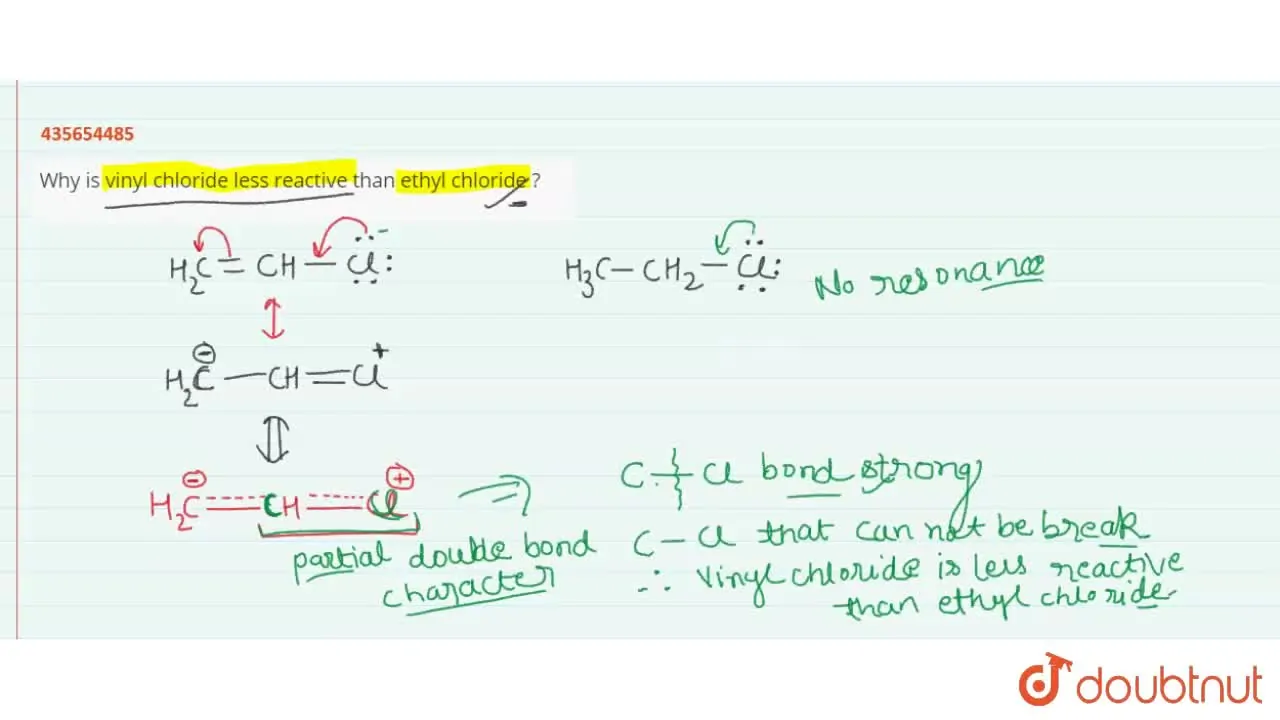 435654485
Why is vinyl chloride less reactive than ethyl chloride ?
H₂C = CH — Cl:
H₃C — CH₂ — Cl:
No resonance
H₂C⊖ — CH = Cl⁺
H₂C⊖ == CH == Cl⊕
partial double bond
character
C — Cl bond strong
C — Cl that can not be break
∴ Vinyl chloride is less reactive
than ethyl chloride
doubtnut